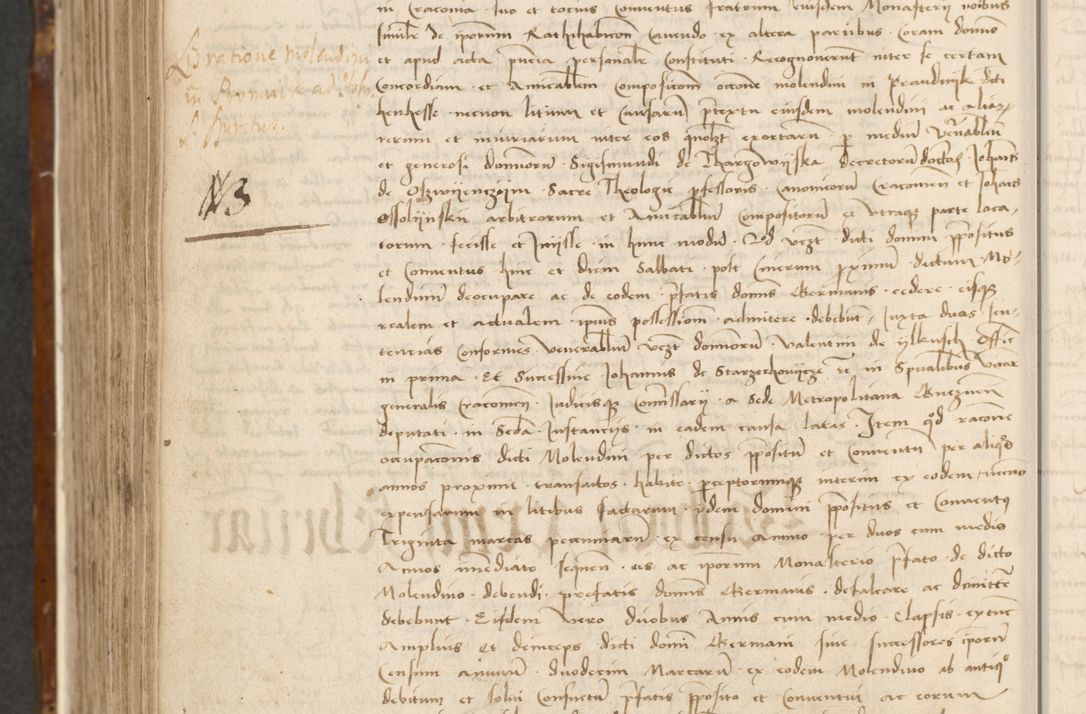 in Cracovia suo et tocius Conventus fratrum eiusdem Monasterij nobus
simile de ipsorum Rathihabicion Cavendo ex altera partibus Coram domino
et apud acta pñcia personale Constituti Recognoverunt inter se certam
Concordiam et Amicabilem Composicionem occone molendini in Prandnijk dicti
necnon litium et Causarum ptextu eiusdem molendini ac aliar
rerum et iniuriarum inter eos exortarum p medium Venerabilium
et generosi dominorum Sigismundi de Thargowijska Decretorum doctoris Johannis
de Oszwijenczijm Sacre Theologie pfessoris Canonicorum Cracovien et Johanis
Ossolijnskij arbitrorum et Amicabilium Compositorum ex utraque parte loca
torum fecisse et Inijsse in hunc modum Qd vczt dicti domini ppositus
et Conventus hinc et diem Sabbati post Cinerum pximum dictum Mo
lendinum deocupare ac de eodem pfatis dominis Germanis cedere eisque
realem et actualem ipsius possessionem admittere debebunt Iuxta duas Sen
tencias Conformes Venerabilium vczt dominorum Valentini de ijlkusch Offic
in prima Et Successive Johannis de Starzechowijcze in Spualibus Vicar
generalis Cracovien Iudicisque Comissarij a Sede Metropolitana Gneznen
deputati in Scda Instancijs in eadem causa latas Item qd racone
occupaconis dicti Molendini per dictos ppositum et Conventum per aliquos
annos proxime transactos habite pceptorumque interim ex eodem
expensarum in litibus factarum ijdem domini ppositus et Conventus
Triginta marcas pecuniarum ex censu annuo per duos cum medio
Annos immediate sequen eis ac ipsorum Monasterio pfato de dicto
Molendino debendi prefatis dominis Germanis defalcare ac dimittere
debebunt Eisdem vero duobus Annis cum medio Elapsis extunc
Amplius et deinceps dicti domini Germani sive successores ipsorum
Censum annuum duodecim Marcarum ex eodem Molendino ab antiquo
debitum et solui Consuetum pfatis pposito et Conventui ac eorum
ratione molendini
in Prannik ad Hosp
S. Spiritus.
N3